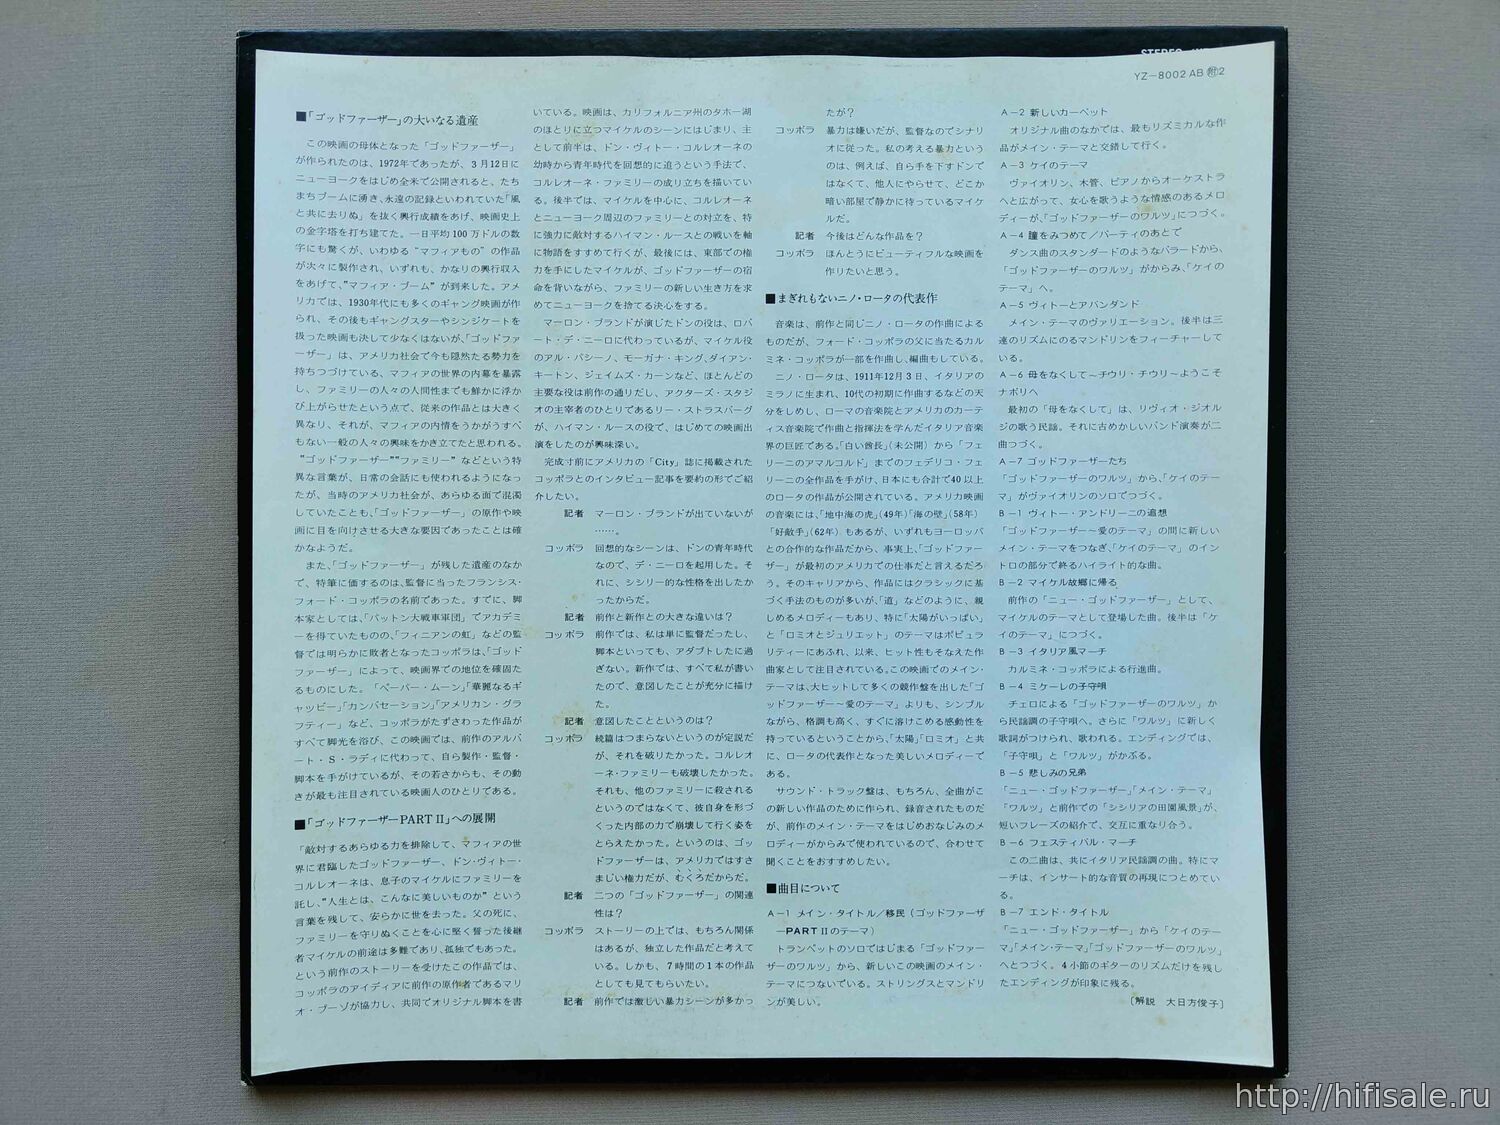 STEREO
YZ-8002 AB ㊞2
■「ゴッドファーザー」の大いなる遺産
この映画の母体となった「ゴッドファーザー」
が作られたのは、1972年であったが、3月12日に
ニューヨークをはじめ全米で公開されると、たち
まちブームに湧き、永遠の記録といわれていた「風
と共に去りぬ」を抜く興行成績をあげ、映画史上
の金字塔を打ち建てた。一日平均100万ドルの数
字にも驚くが、いわゆる“マフィアもの”の作品
が次々に製作され、いずれも、かなりの興行収入
をあげて、“マフィア・ブーム”が到来した。アメ
リカでは、1930年代にも多くのギャング映画が作
られ、その後もギャングスターやシンジケートを
扱った映画も決して少なくはないが、「ゴッドファ
ーザー」は、アメリカ社会で今も隠然たる勢力を
持ちつづけている、マフィアの世界の内幕を暴露
し、ファミリーの人々の人間性までも鮮かに浮か
び上がらせたという点で、従来の作品とは大きく
異なり、それが、マフィアの内情をうかがうすべ
もない一般の人々の興味をかき立てたと思われる。
“ゴッドファーザー”“ファミリー”などという特
異な言葉が、日常の会話にも使われるようになっ
たが、当時のアメリカ社会が、あらゆる面で混濁
していたことも、「ゴッドファーザー」の原作や映
画に目を向けさせる大きな要因であったことは確
かなようだ。
また、「ゴッドファーザー」が残した遺産のなか
で、特筆に価するのは、監督に当ったフランシス・
フォード・コッポラの名前であった。すでに、脚
本家としては、「パットン大戦車軍団」でアカデミ
ーを得ていたものの、「フィニアンの虹」などの監
督では明らかに敗者となったコッポラは、「ゴッド
ファーザー」によって、映画界での地位を確固た
るものにした。「ペーパー・ムーン」「華麗なるギ
ャッビー」「カンバセーション」「アメリカン・グラ
フティー」など、コッポラがたずさわった作品が
すべて脚光を浴び、この映画では、前作のアルバ
ート・S・ラディに代わって、自ら製作・監督・
脚本を手がけているが、その若さからも、その動
きが最も注目されている映画人のひとりである。
■「ゴッドファーザーPART II」への展開
「敵対するあらゆる力を排除して、マフィアの世
界に君臨したゴッドファーザー、ドン・ヴィトー・
コルレオーネは、息子のマイケルにファミリーを
託し、“人生とは、こんなに美しいものか”という
言葉を残して、安らかに世を去った。父の死に、
ファミリーを守りぬくことを心に堅く誓った後継
者マイケルの前途は多難であり、孤独でもあった。
という前作のストーリーを受けたこの作品では、
コッポラのアイディアに前作の原作者であるマリ
オ・プーゾが協力し、共同でオリジナル脚本を書
いている。映画は、カリフォルニア州のタホー湖
のほとりに立つマイケルのシーンにはじまり、主
として前半は、ドン・ヴィトー・コルレオーネの
幼時から青年時代を回想的に追うという手法で、
コルレオーネ・ファミリーの成り立ちを描いてい
る。後半では、マイケルを中心に、コルレオーネ
とニューヨーク周辺のファミリーとの対立を、特
に強力に敵対するハイマン・ルースとの戦いを軸
に物語をすすめて行くが、最後には、東部での権
力を手にしたマイケルが、ゴッドファーザーの宿
命を背いながら、ファミリーの新しい生き方を求
めてニューヨークを捨てる決心をする。
マーロン・ブランドが演じたドンの役は、ロバ
ート・デ・ニーロに代わっているが、マイケル役
のアル・パシーノ、モーガナ・キング、ダイアン・
キートン、ジェイムズ・カーンなど、ほとんどの
主要な役は前作の通りだし、アクターズ・スタジ
オの主宰者のひとりであるリー・ストラスバーグ
が、ハイマン・ルースの役で、はじめての映画出
演をしたのが興味深い。
完成寸前にアメリカの「City」誌に掲載された
コッポラとのインタビュー記事を要約の形でご紹
介したい。
記者 マーロン・ブランドが出ていないが
……。
コッポラ 回想的なシーンは、ドンの青年時代
なので、デ・ニーロを起用した。そ
れに、シシリー的な性格を出したか
ったからだ。
記者 前作と新作との大きな違いは？
コッポラ 前作では、私は単に監督だったし、
脚本といっても、アダプトしたに過
ぎない。新作では、すべて私が書い
たので、意図したことが充分に描け
た。
記者 意図したことというのは？
コッポラ 続篇はつまらないというのが定説だ
が、それを破りたかった。コルレオ
ーネ・ファミリーも破壊したかった。
それも、他のファミリーに殺される
というのではなくて、彼自身を形づ
くった内部の力で崩壊して行く姿を
とらえたかった。というのは、ゴッ
ドファーザーは、アメリカではすさ
まじい権力だが、むくろだからだ。
記者 二つの「ゴッドファーザー」の関連
性は？
コッポラ ストーリーの上では、もちろん関係
はあるが、独立した作品だと考えて
いる。しかも、7時間の1本の作品
としても見てもらいたい。
記者 前作では激しい暴力シーンが多かっ
たが？
コッポラ 暴力は嫌いだが、監督なのでシナリ
オに従った。私の考える暴力という
のは、例えば、自ら手を下すドンで
はなくて、他人にやらせて、どこか
暗い部屋で静かに待っているマイケ
ルだ。
記者 今後はどんな作品を？
コッポラ ほんとうにビューティフルな映画を
作りたいと思う。
■まぎれもないニノ・ロータの代表作
音楽は、前作と同じニノ・ロータの作曲による
ものだが、フォード・コッポラの父に当たるカル
ミネ・コッポラが一部を作曲し、編曲もしている。
ニノ・ロータは、1911年12月3日、イタリアの
ミラノに生まれ、10代の初期に作曲するなどの天
分をしめし、ローマの音楽院とアメリカのカーテ
ィス音楽院で作曲と指揮法を学んだイタリア音楽
界の巨匠である。「白い酋長」（未公開）から「フェ
リーニのアマルコルド」までのフェデリコ・フェ
リーニの全作品を手がけ、日本にも合計で40以上
のロータの作品が公開されている。アメリカ映画
の音楽には、「地中海の虎」（49年）「海の壁」（58年）
「好敵手」（62年）もあるが、いずれもヨーロッパ
との合作的な作品だから、事実上、「ゴッドファー
ザー」が最初のアメリカでの仕事だと言えるだろ
う。そのキャリアから、作品にはクラシックに基
づく手法のものが多いが、「道」などのように、親
しめるメロディーもあり、特に「太陽がいっぱい」
と「ロミオとジュリエット」のテーマはポピュラ
リティーにあふれ、以来、ヒット性もそなえた作
曲家として注目されている。この映画でのメイン・
テーマは、大ヒットして多くの競作盤を出した「ゴ
ッドファーザー〜愛のテーマ」よりも、シンプル
ながら、格調も高く、すぐに溶けこめる感動性を
持っているということから、「太陽」「ロミオ」と共
に、ロータの代表作となった美しいメロディーで
ある。
サウンド・トラック盤は、もちろん、全曲がこ
の新しい作品のために作られ、録音されたものだ
が、前作のメイン・テーマをはじめおなじみのメ
ロディーがからみで使われているので、合わせて
聞くことをおすすめしたい。
■曲目について
A-1 メイン・タイトル／移民（ゴッドファーザ
ーPART IIのテーマ）
トランペットのソロではじまる「ゴッドファー
ザーのワルツ」から、新しいこの映画のメイン・
テーマにつないでいる。ストリングスとマンドリ
ンが美しい。
A-2 新しいカーペット
オリジナル曲のなかでは、最もリズミカルな作
品がメイン・テーマと交錯して行く。
A-3 ケイのテーマ
ヴァイオリン、木管、ピアノからオーケストラ
へと広がって、女心を歌うような情感のあるメロ
ディーが、「ゴッドファーザーのワルツ」につづく。
A-4 瞳をみつめて／パーティのあとで
ダンス曲のスタンダードのようなバラードから、
「ゴッドファーザーのワルツ」がからみ、「ケイの
テーマ」へ。
A-5 ヴィトーとアバンダンド
メイン・テーマのヴァリエーション。後半は三
連のリズムにのるマンドリンをフィーチャーして
いる。
A-6 母をなくして〜チウリ・チウリ〜ようこそ
ナポリへ
最初の「母をなくして」は、リヴィオ・ジオル
ジの歌う民謡。それに古めかしいバンド演奏が二
曲つづく。
A-7 ゴッドファーザーたち
「ゴッドファーザーのワルツ」から、「ケイのテー
マ」がヴァイオリンのソロでつづく。
B-1 ヴィトー・アンドリーニの追想
「ゴッドファーザー〜愛のテーマ」の間に新しい
メイン・テーマをつなぎ、「ケイのテーマ」のイン
トロの部分で終るハイライト的な曲。
B-2 マイケル故郷に帰る
前作の「ニュー・ゴッドファーザー」として、
マイケルのテーマとして登場した曲。後半は「ケ
イのテーマ」につづく。
B-3 イタリア風マーチ
カルミネ・コッポラによる行進曲。
B-4 ミケーレの子守唄
チェロによる「ゴッドファーザーのワルツ」か
ら民謡調の子守唄へ。さらに「ワルツ」に新しく
歌詞がつけられ、歌われる。エンディングでは、
「子守唄」と「ワルツ」がかぶる。
B-5 悲しみの兄弟
「ニュー・ゴッドファーザー」「メイン・テーマ」
「ワルツ」と前作での「シシリアの田園風景」が、
短いフレーズの紹介で、交互に重なり合う。
B-6 フェスティバル・マーチ
この二曲は、共にイタリア民謡調の曲。特にマ
ーチは、インサート的な音質の再現につとめてい
る。
B-7 エンド・タイトル
「ニュー・ゴッドファーザー」から「ケイのテー
マ」「メイン・テーマ」「ゴッドファーザーのワルツ」
へとつづく。4小節のギターのリズムだけを残し
たエンディングが印象に残る。
〔解説 大日方俊子〕
http://hifisale.ru